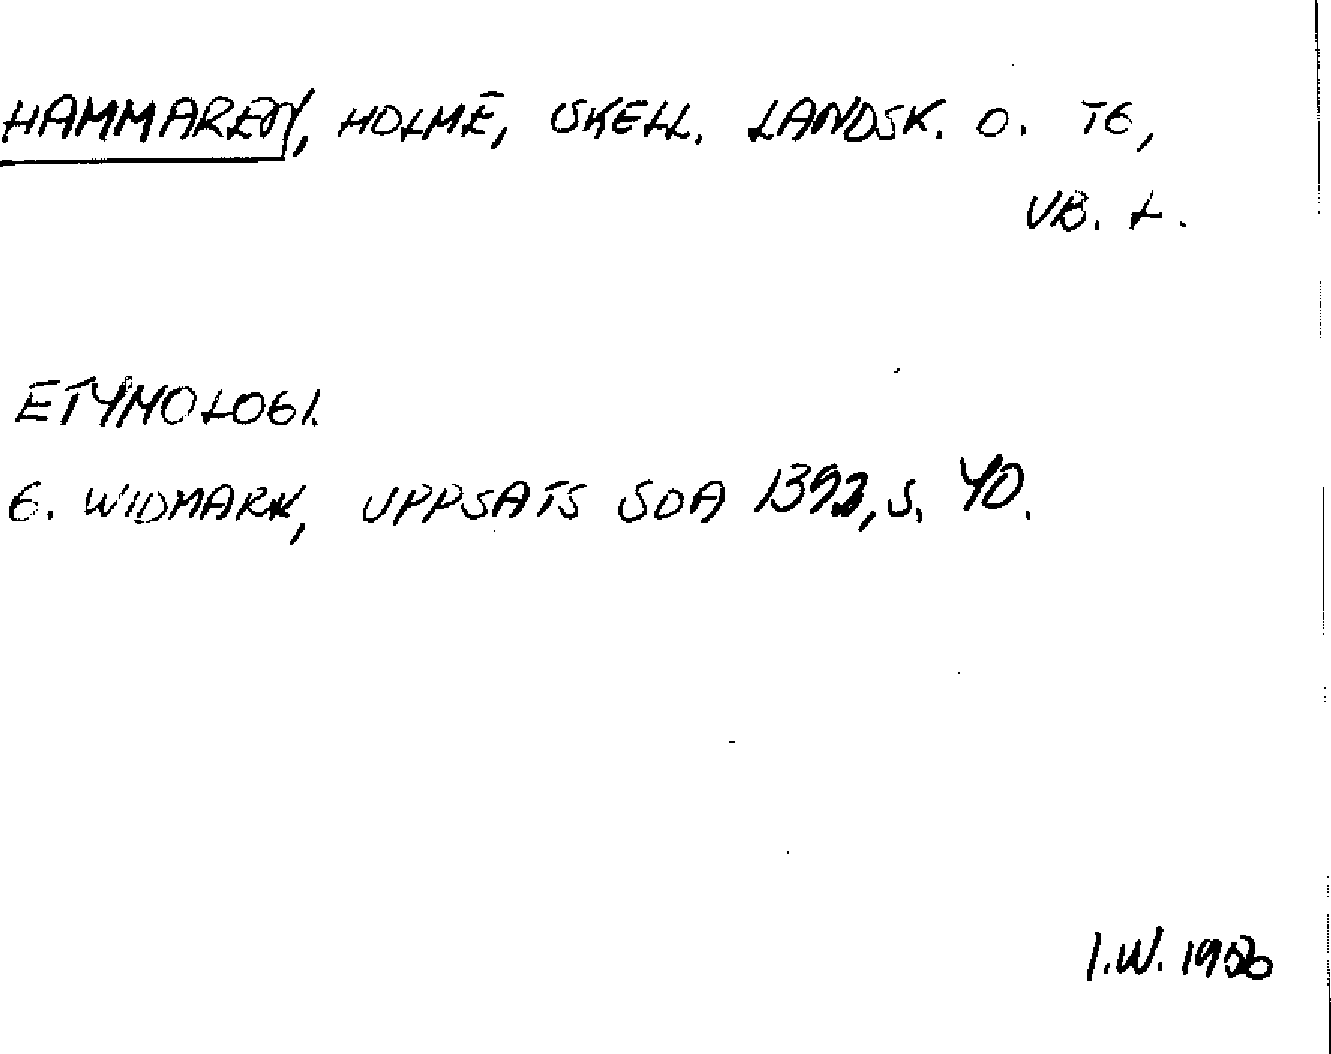 HAMMAREN, HOLME, SKELL. LANDSK. O. TG,
VB. L.
ETYMOLOGI.
G. WIDMARK, UPPSATS SOA 1392, S. 40.
I.W. 1956